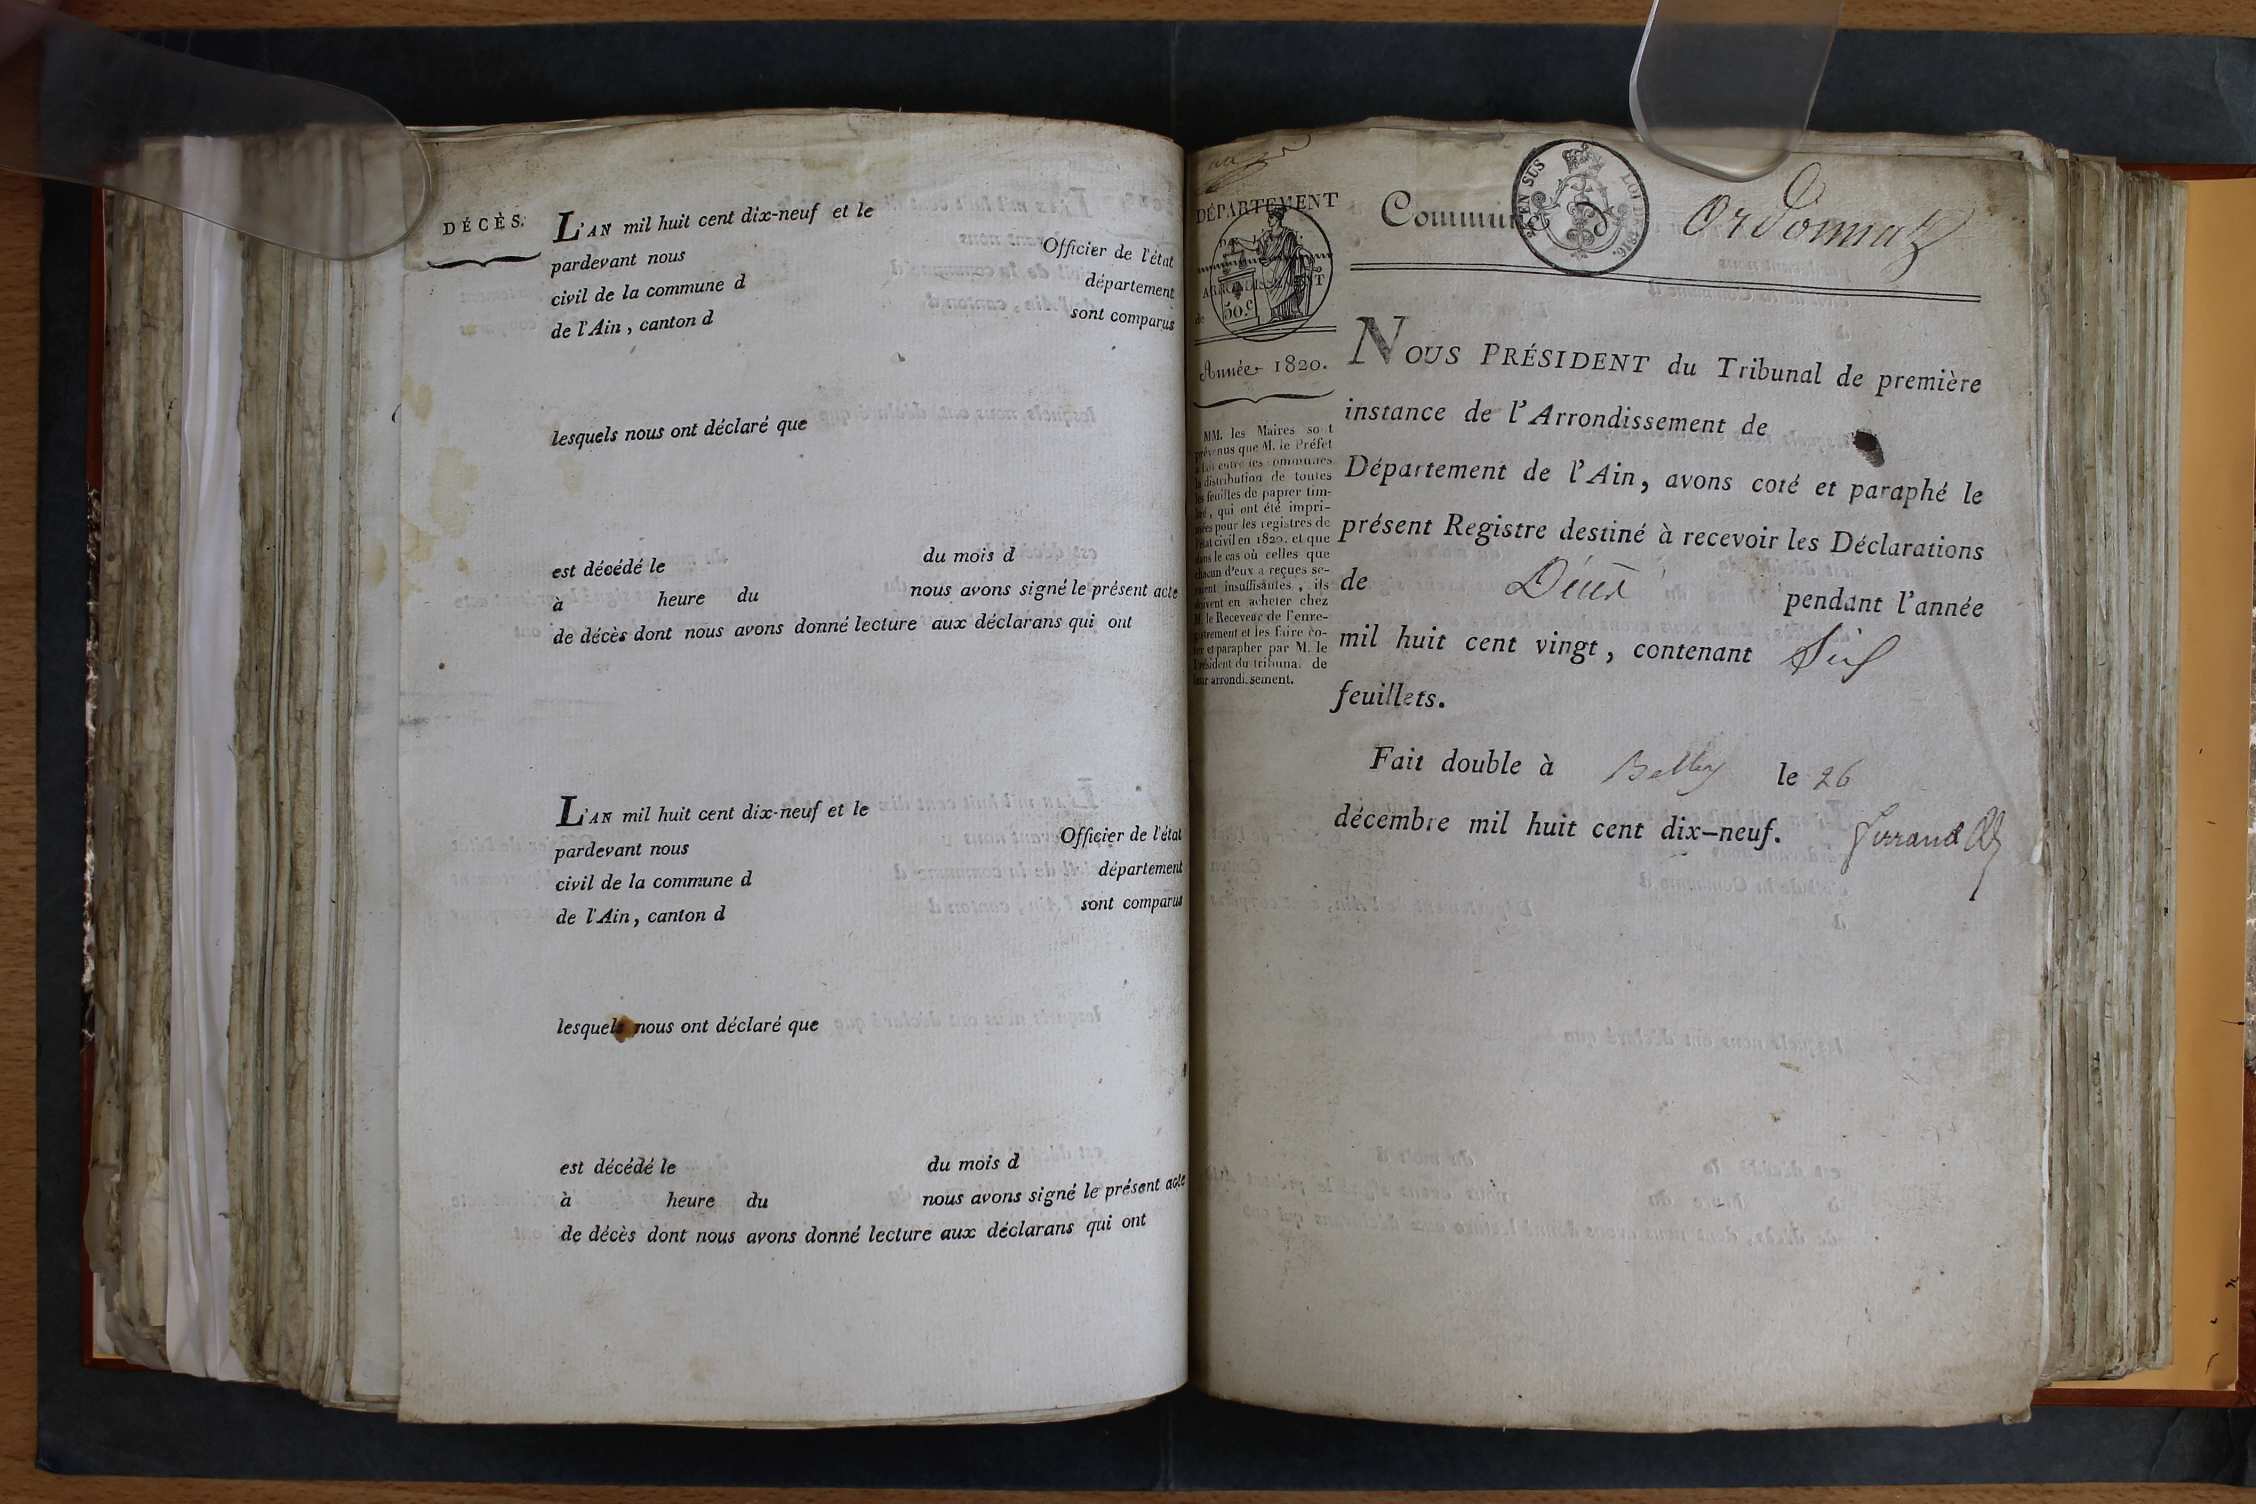 DÉCÈS.
L'AN mil huit cent dix-neuf et le
pardevant nous Officier de l'état
civil de la commune d département
de l'Ain, canton d sont comparus
lesquels nous ont déclaré que
est décédé le du mois d
à heure du nous avons signé le présent acte
de décès dont nous avons donné lecture aux déclarans qui ont
L'AN mil huit cent dix-neuf et le
pardevant nous Officier de l'état
civil de la commune d département
de l'Ain, canton d sont comparus
lesquels nous ont déclaré que
est décédé le du mois d
à heure du nous avons signé le présent acte
de décès dont nous avons donné lecture aux déclarans qui ont
DÉPARTEMENT
ARRONDISSEMENT
50.c
de
Année 1820.
MM. les Maires sont
prévenus que M. le Préfet
a fait entre les communes
la distribution de toutes
les feuilles de papier tim-
bré, qui ont été impri-
mées pour les registres de
l'état civil en 1820. et que
dans le cas où celles que
chacun d'eux a reçues se-
raient insuffisantes, ils
doivent en acheter chez
M. le Receveur de l'enre-
gistrement et les faire co-
ter et parapher par M. le
Président du tribunal de
leur arrondissement.
Commune d Ordonnaz
EN SUS LOI DE 1816.
NOUS PRÉSIDENT du Tribunal de première
instance de l'Arrondissement de
Département de l'Ain, avons coté et paraphé le
présent Registre destiné à recevoir les Déclarations
de Décès pendant l'année
mil huit cent vingt, contenant Six
feuillets.
Fait double à Belley le 26
décembre mil huit cent dix-neuf. Ferrand